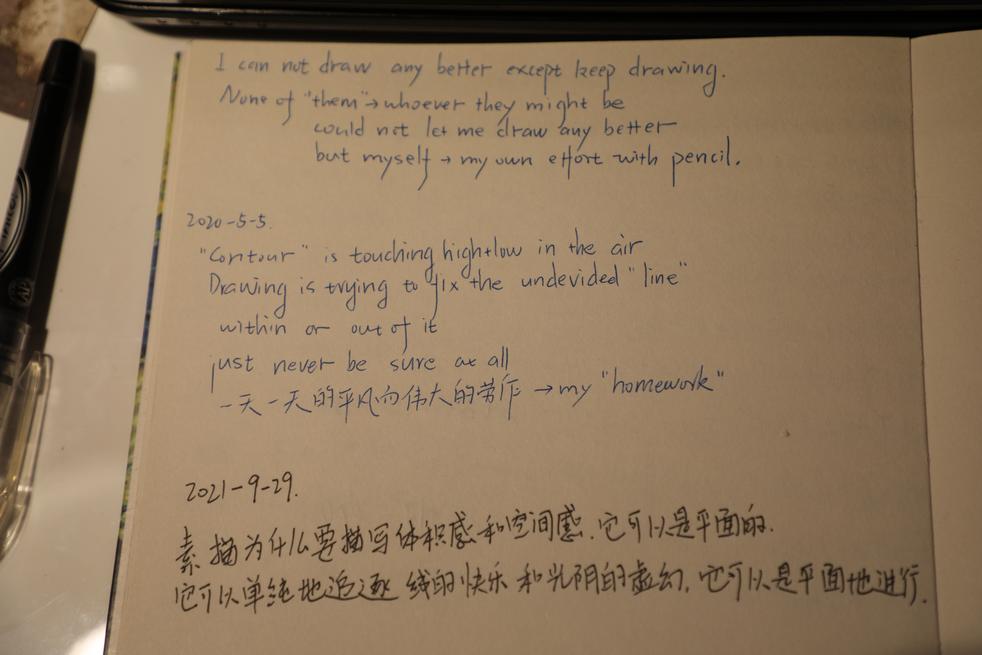 I can not draw any better except keep drawing.
None of "them"→whoever they might be
could not let me draw any better
but myself → my own effort with pencil.
2020-5-5.
"Contour" is touching high+low in the air
Drawing is trying to fix the undevided "line"
within or out of it
just never be sure at all
一天一天的平凡向伟大的劳作 → my "homework"
2021-9-29.
素描为什么要描写体积感和空间感.它可以是平面的.
它可以单纯地追逐线的快乐和光阴的虚幻.它可以是平面地进行.